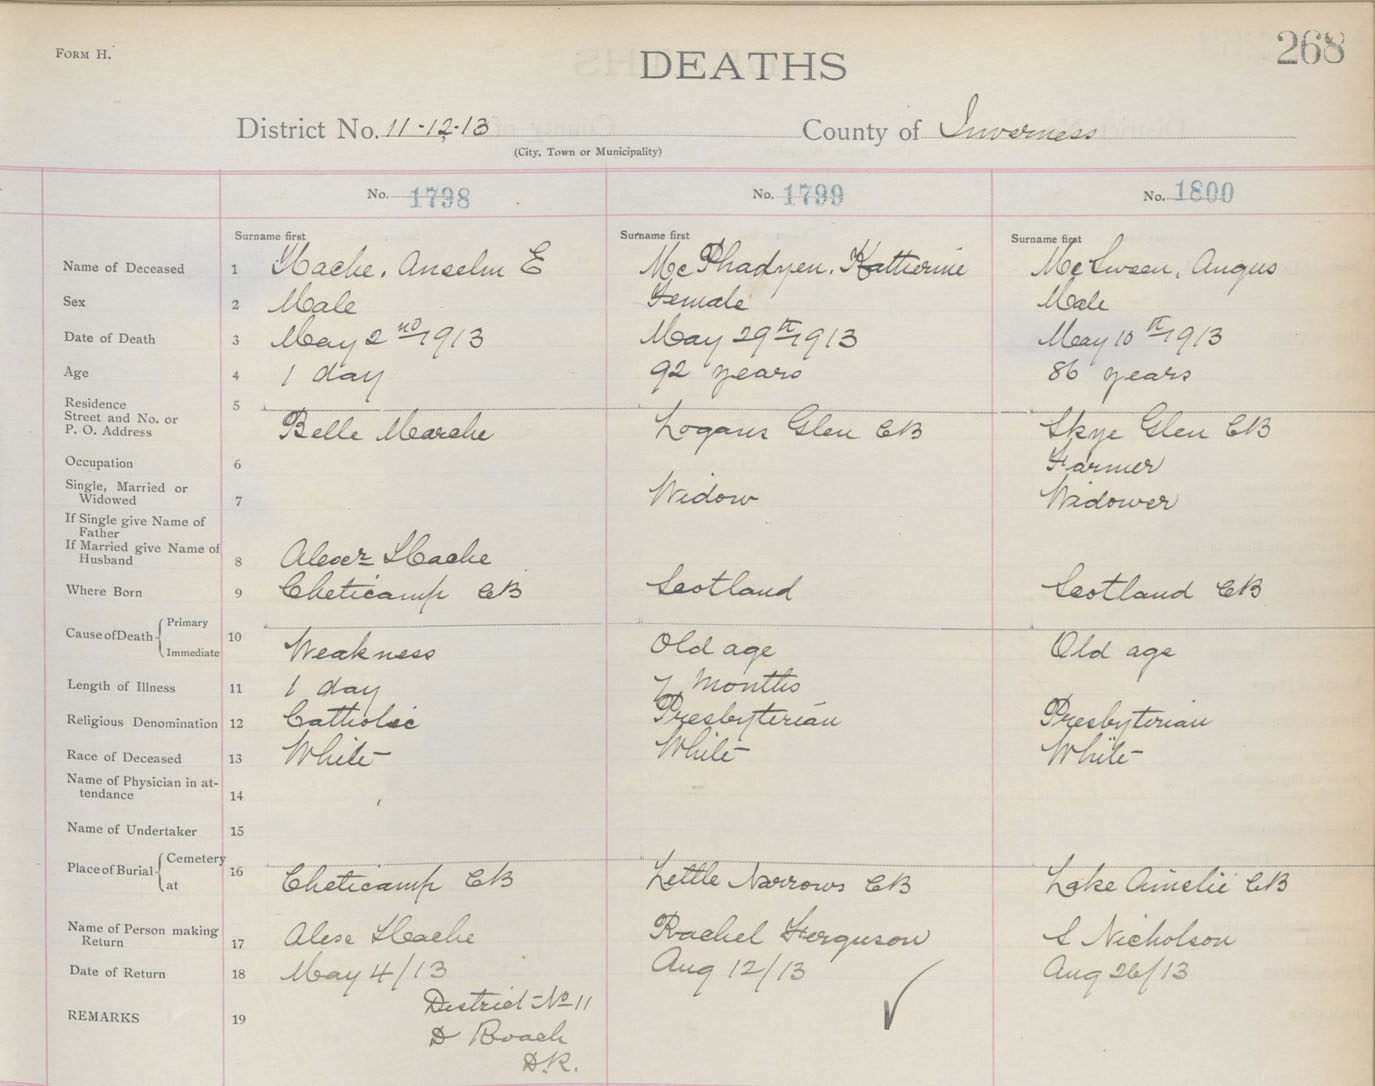 FORM H.
268
DEATHS
District No. 11-12-13 County of Inverness
(City, Town or Municipality)
No. 1798 No. 1799 No. 1800
Surname first Surname first Surname first
Name of Deceased 1 Hache, Anselm E McPhadyen, Katherine McSween, Angus
Sex 2 Male Female Male
Date of Death 3 May 2nd 1913 May 29th 1913 May 10th 1913
Age 4 1 day 92 years 86 years
Residence 5
Street and No. or
P. O. Address Belle Marche Logans Glen CB Skye Glen CB
Occupation 6 Farmer
Single, Married or
Widowed 7 Widow Widower
If Single give Name of
Father
If Married give Name of
Husband 8 Alexr Hache
Where Born 9 Cheticamp CB Scotland Scotland CB
Cause of Death Primary
Immediate 10 Weakness Old age Old age
Length of Illness 11 1 day 7 months
Religious Denomination 12 Catholic Presbyterian Presbyterian
Race of Deceased 13 White White White
Name of Physician in at-
tendance 14
Name of Undertaker 15
Place of Burial Cemetery
at 16 Cheticamp CB Little Narrows CB Lake Ainslie CB
Name of Person making
Return 17 Alex Hache Rachel Ferguson S Nicholson
Date of Return 18 May 4/13 Aug 12/13 Aug 26/13
REMARKS 19 District No 11
D Roach
D.R.